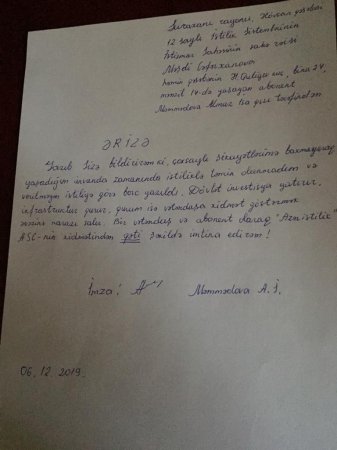 Suraxanı rayonu, Hövsan qəsəbəsi
12 saylı İstilik Sistemlərinin
İstismarı Sahəsinin sahə rəisi
Məşədi
həmin qəsəbənin H. Quliyev küç., bina 24,
mənzil 14-də yaşayan abonent
Məmmədova Almaz İsa qızı tərəfindən
ƏRİZƏ
Yazıb Sizə bildirirəm ki, çoxsaylı şikayətlərimə baxmayaraq
yaşadığım ünvanda zamanında istiliklə təmin olunmadım və
verilməyən istiliyə görə borc yazıldı. Dövlət investisiya yatırır,
infrastruktur qurur, qurum isə vətəndaşa xidmət göstərmək
əvəzinə narazı salır. Bir vətəndaş və abonent olaraq "Azəristilik"
ASC-nin xidmətindən qəti şəkildə imtina edirəm!
İmza: Məmmədova A. İ.
06. 12. 2019.